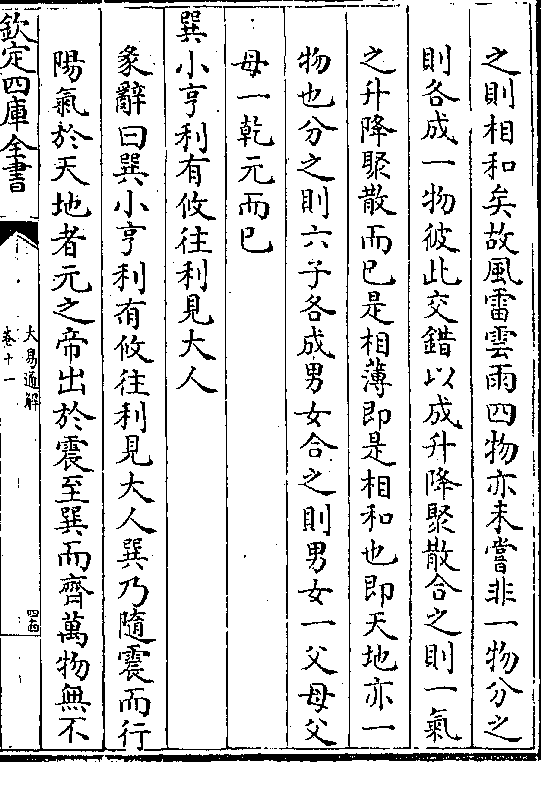 之則相和矣故風雷雲雨四物亦未嘗非一物分之
則各成一物彼此交錯以成升降聚散合之則一氣
之升降聚散而已是相薄即是相和也即天地亦一
物也分之則六子各成男女合之則男女一父母父
母一乾元而已
巽小亨利有攸往利見大人
彖辭曰巽小亨利有攸往利見大人巽乃隨震而行
陽氣於天地者元之帝出於震至巽而齊萬物無不
欽定四庫全書
大易通解
卷十一
四函